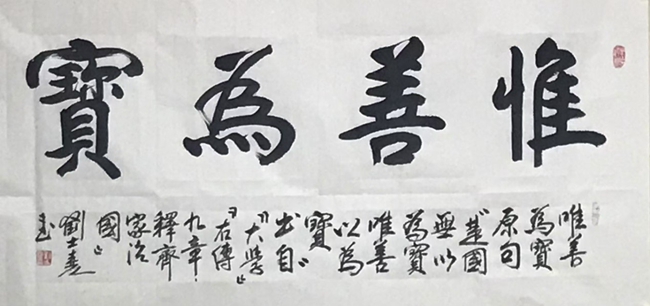 惟善為寶
唯善
為寶
原句
“楚國
無以
為寶
唯善
以為
寶”
出自
『大學』
『右傳』
九章
釋齊
家治
國』
劉士堯
书